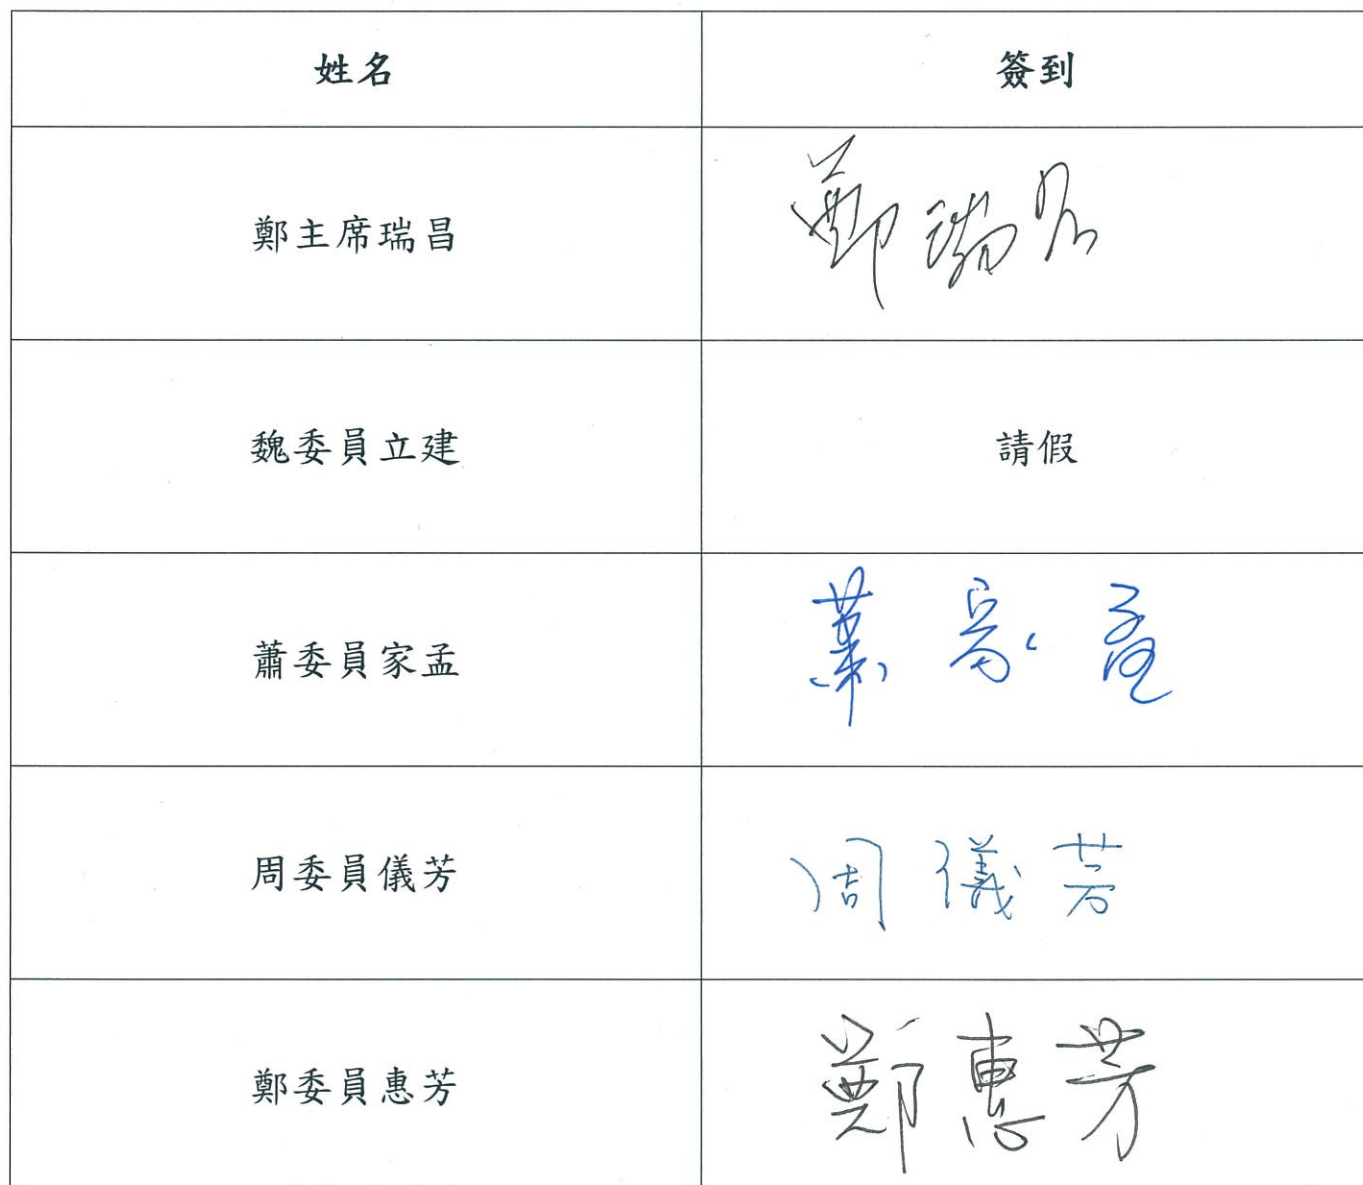 姓名 簽到
鄭主席瑞昌 鄭瑞昌
魏委員立建 請假
蕭委員家孟 蕭家孟
周委員儀芳 周儀芳
鄭委員惠芳 鄭惠芳